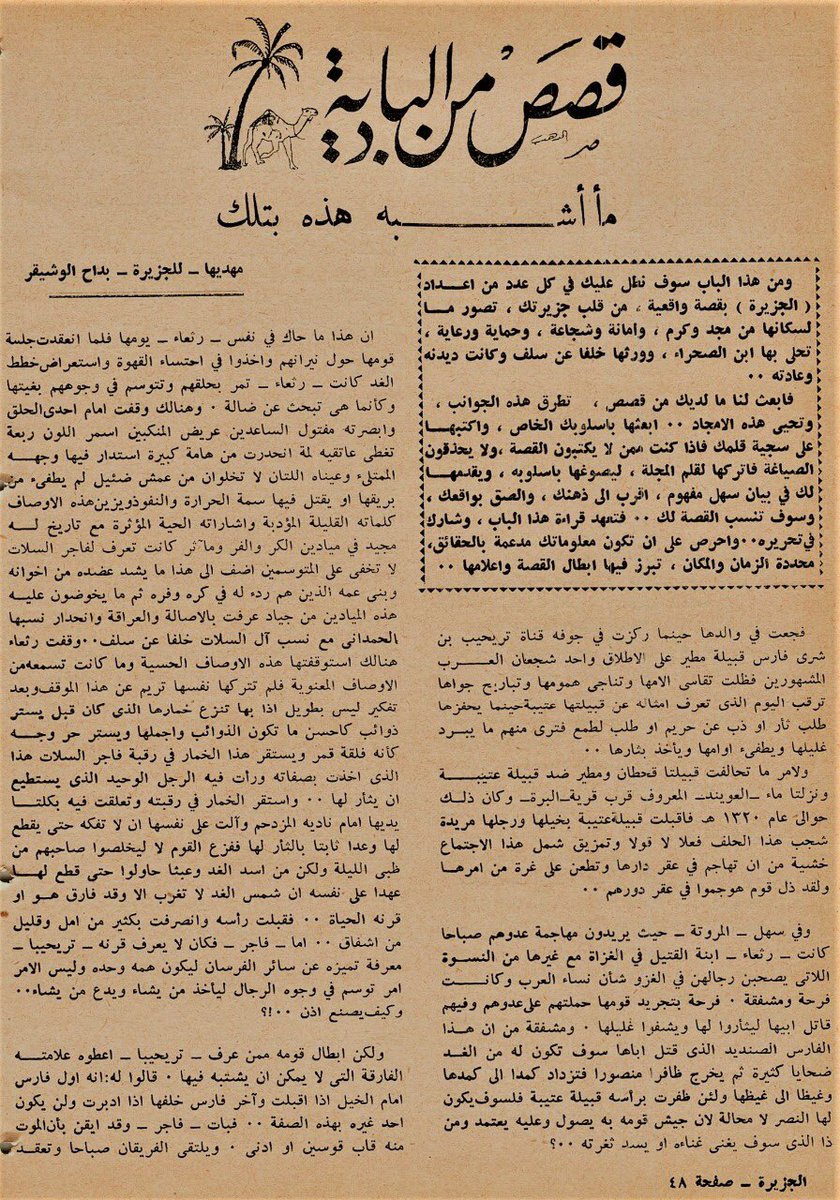 قصص من البادية
ما أشبه هذه بتلك
ومن هذا الباب سوف نطل عليك في كل عدد من اعداد
( الجزيرة ) بقصة واقعية ، من قلب جزيرتك ، تصور ما
لسكانها من مجد وكرم ، وامانة وشجاعة ، وحماية ورعاية ،
تحلى بها ابن الصحراء ، وورثها خلفا عن سلف وكانت ديدنه
وعادته ٠٠
فابعث لنا ما لديك من قصص ، تطرق هذه الجوانب ،
وتحيى هذه الامجاد ٠٠ ابعثها باسلوبك الخاص ، واكتبهـا
على سجية قلمك فاذا كنت ممن لا يكتبون القصة ،ولا يحذقون
الصياغة فاتركها لقلم المجلة ، ليصوغها باسلوبه ، ويقدمهـا
لك في بيان سهل مفهوم ، اقرب الى ذهنك ، والصق بواقعك ،
وسوف تنسب القصة لك ٠٠ فتعهد قراءة هذا الباب ، وشارك
في تحريره٠٠واحرص على ان تكون معلوماتك مدعمة بالحقائق،
محددة الزمان والمكان ، تبرز فيها ابطال القصة واعلامها ٠٠
فجعت في والدها حينما ركزت في جوفه قناة تريحيب بن
شرى فارس قبيلة مطير على الاطلاق واحد شجعان العـــرب
المشهورين فظلت تقاسى الامها وتناجى همومها وتباريح جواها
ترقب اليوم الذى تعرف امثاله عن قبيلتها عتيبةحينما يحفزها
طلب ثأر او ذب عن حريم او طلب لطمع فترى منهم ما يبـرد
غليلها ويطفىء اوامها ويأخذ بثارها ٠٠
ولامر ما تحالفت قبيلتا قحطان ومطير ضد قبيلة عتيبـــة
ونزلتا ماء ـ العويند ـ المعروف قرب قرية ـ البرة ـ وكان ذلـك
حوالى عام ١٣٢٠ هـ فاقبلت قبيلةعتيبة بخيلها ورجلها مريدة
شجب هذا الحلف فعلا لا قولا وتمزيق شمل هذا الاجتماع
خشية من ان تهاجم في عقر دارها وتطعن على غرة من امرهـا
ولقد ذل قوم هوجموا في عقر دورهم ٠٠
وفي سهل ـ المروتة ـ حيث يريدون مهاجمة عدوهم صباحا
كانت ـ رثعاء ـ ابنة القتيل في الغزاة مع غيرها من النسـوة
اللاتى يصحبن رجالهن في الغزو شأن نساء العرب وكانـــت
فرحة ومشفقة ٠ فرحة بتجريد قومها حملتهم علىعدوهم وفيهم
قاتل ابيها ليثأروا لها ويشفوا غليلها ٠ ومشفقة من ان هـذا
الفارس الصنديد الذى قتل اباها سوف تكون له من الغـد
ضحايا كثيرة ثم يخرج ظافرا منصورا فتزداد كمدا الى كمدها
وغيظا الى غيظها ولئن ظفرت برأسه قبيلة عتيبة فلسوف‌يكون
لها النصر لا محالة لان جيش قومه به يصول وعليه يعتمد ومن
ذا الذى سوف يغنى غناءه او يسد ثغرته ٠٠؟
مهديها ـ للجزيرة ـ بداح الوشيقر
ان هذا ما حاك في نفس ـ رثعاء ـ يومها فلما انعقدت‌جلسة
قومها حول نيرانهم واخذوا في احتساء القهوة واستعراض‌خطط
الغد كانت ـ رثعاء ـ تمر بحلقهم وتتوسم في وجوههم بغيتها
وكأنما هى تبحث عن ضالة ٠ وهنالك وقفت امام احدى‌الحلق
وابصرته مفتول الساعدين عريض المنكبين اسمر اللون ربعة
تغطى عاتقيه لمة انحدرت من هامة كبيرة استدار فيها وجهــه
الممتلىء وعيناه اللتان لا تخلوان من عمش ضئيل لم يطفىء من
بريقها او يقتل فيها سمة الحرارة والنفوذ‌ويزين‌هذه الاوصاف
كلماته القليلة المؤدبة واشاراته الحية المؤثرة مع تاريخ لــه
مجيد في ميادين الكر والفر ومآثر كانت تعرف لفاجر السلات
لا تخفى على المتوسمين اضف الى هذا ما يشد عضده من اخوانه
وبنى عمه الذين هم ردء له في كره وفره ثم ما يخوضون عليـه
هذه الميادين من جياد عرفت بالاصالة والعراقة وانحدار نسبها
الحمدانى مع نسب آل السلات خلفا عن سلف٠٠وقفت رثعاء
هنالك استوقفتها هذه الاوصاف الحسية وما كانت تسمعه‌من
الاوصاف المعنوية فلم تتركها نفسها تريم عن هذا الموقف‌وبعد
تفكير ليس بطويل اذا بها تنزع خمارها الذى كان قبل يستر
ذوائب كاحسن ما تكون الذوائب واجملها ويستر حر وجــه
كأنه فلقة قمر ويستقر هذا الخمار في رقبة فاجر السلات هذا
الذى اخذت بصفاته ورأت فيه الرجل الوحيد الذى يستطيع
ان يثأر لها ٠٠ واستقر الخمار في رقبته وتعلقت فيه بكلتـا
يديها امام ناديه المزدحم وآلت على نفسها ان لا تفكه حتى يقطع
لها وعدا ثابتا بالثأر لها ففزع القوم لا ليخلصوا صاحبهم من
ظبى الليلة ولكن من اسد الغد وعبثا حاولوا حتى قطع لهـا
عهدا على نفسه ان شمس الغد لا تغرب الا وقد فارق هـو او
قرنه الحياة ٠٠ فقبلت رأسه وانصرفت بكثير من امل وقليل
من اشفاق ٠٠ اما ـ فاجر ـ فكان لا يعرف قرنه ـ تريحيبا ـ
معرفة تميزه عن سائر الفرسان ليكون همه وحده وليس الامر
امر توسم في وجوه الرجال ليأخذ من يشاء ويدع من يشاء٠٠
وكيف‌يصنع اذن ٠٠!؟
ولكن ابطال قومه ممن عرف ـ تريحيبا ـ اعطوه علامتــه
الفارقة التى لا يمكن ان يشتبه فيها ٠ قالوا له:انه اول فارس
امام الخيل اذا اقبلت وآخر فارس خلفها اذا ادبرت ولن يكون
احد غيره بهذه الصفة ٠٠ فبات ـ فاجر ـ وقد ايقن بأن‌الموت
منه قاب قوسين او ادنى ٠ ويلتقى الفريقان صباحا وتعقـد
الجزيرة ـ صفحة ٤٨